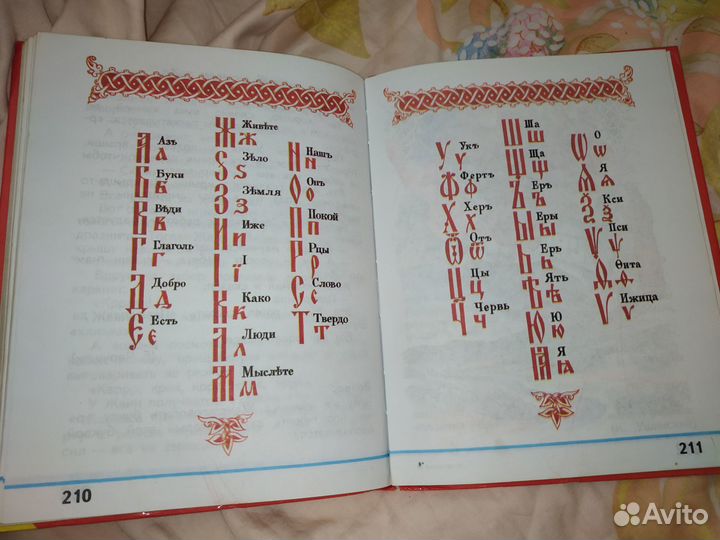 Азъ
А а
Буки
Б б
Вѣди
В в
Глаголь
Г г
Добро
Д д
Есть
Є є
Живѣте
Ж ж
Ѕѣло
Ѕ ѕ
Зѣмля
З з
Иже
И и
І
І ї
Како
К к
Люди
Л л
Мыслѣте
М м
Нашъ
Н н
Онъ
О о
Покой
П п
Рцы
Р р
Слово
С с
Твердо
Т т
210
Укъ
У у
Фертъ
Ф ф
Херъ
Х х
Отъ
Ѿ ѿ
Цы
Ц ц
Червь
Ч ч
Ша
Ш ш
Ща
Щ щ
Еръ
Ъ ъ
Еры
Ы ы
Ерь
Ь ь
Ять
Ѣ ѣ
Ю
Ю ю
Я
Ꙗ ꙗ
О
Ѡ ѡ
Я
Ѧ ѧ
Кси
Ѯ ѯ
Пси
Ѱ ѱ
Ѳита
Ѳ ѳ
Ижица
Ѵ ѵ
211
Avito